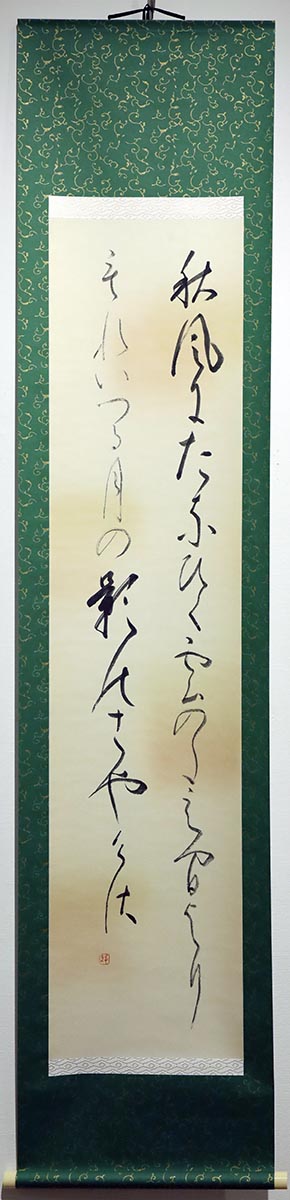 秋風にたなひく雲のたえ間より
もれいつる月の影のさやけさ